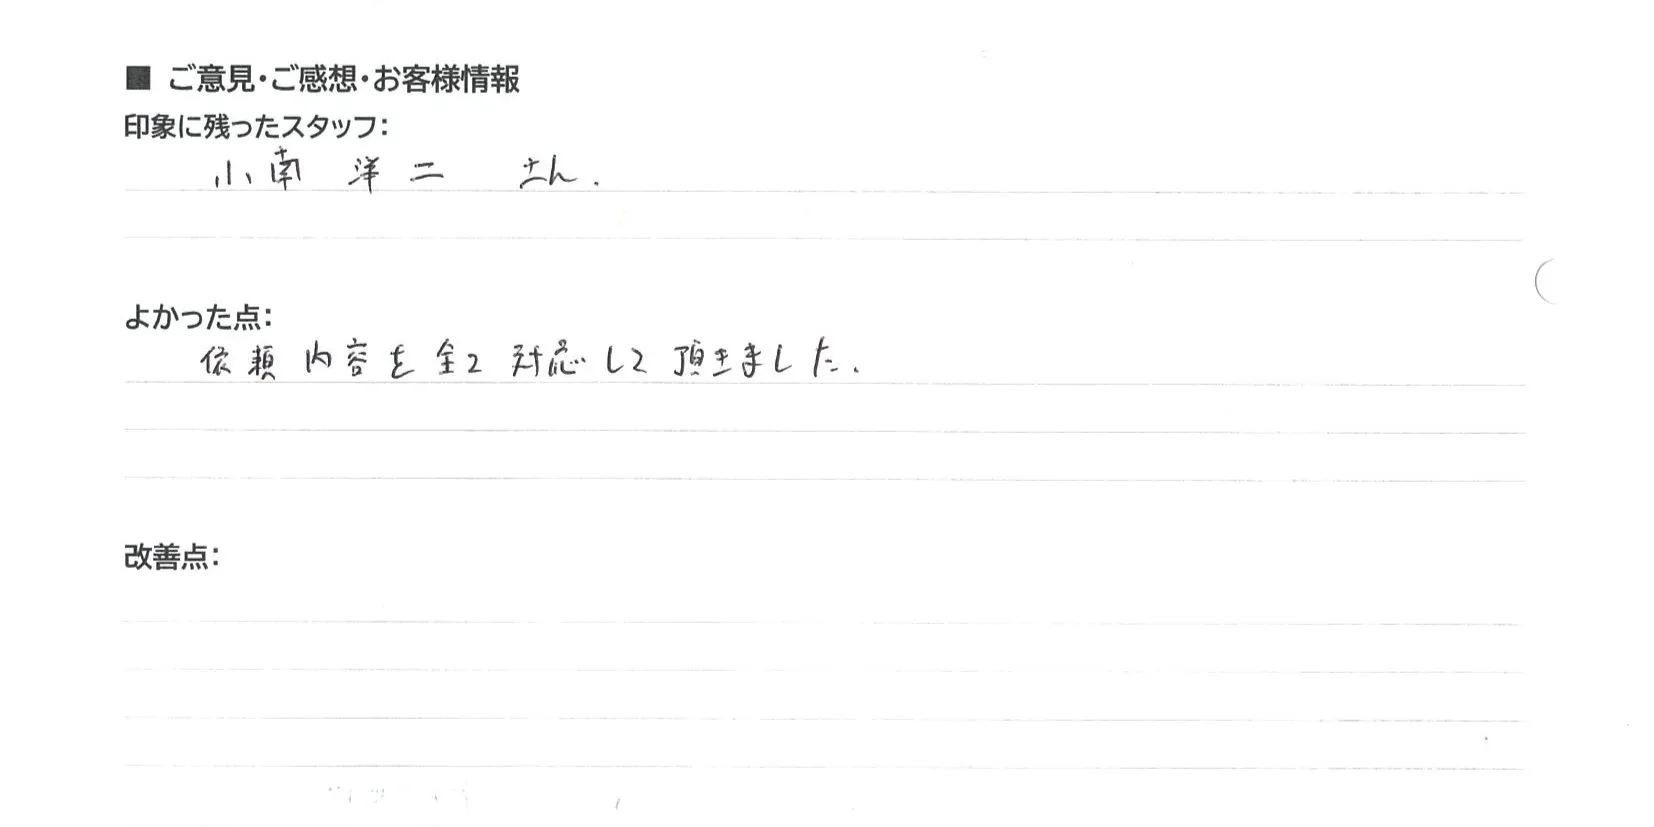 ■ ご意見・ご感想・お客様情報
印象に残ったスタッフ：
小南 洋二 さん.
よかった点：
依頼内容を全て対応して頂きました.
改善点：